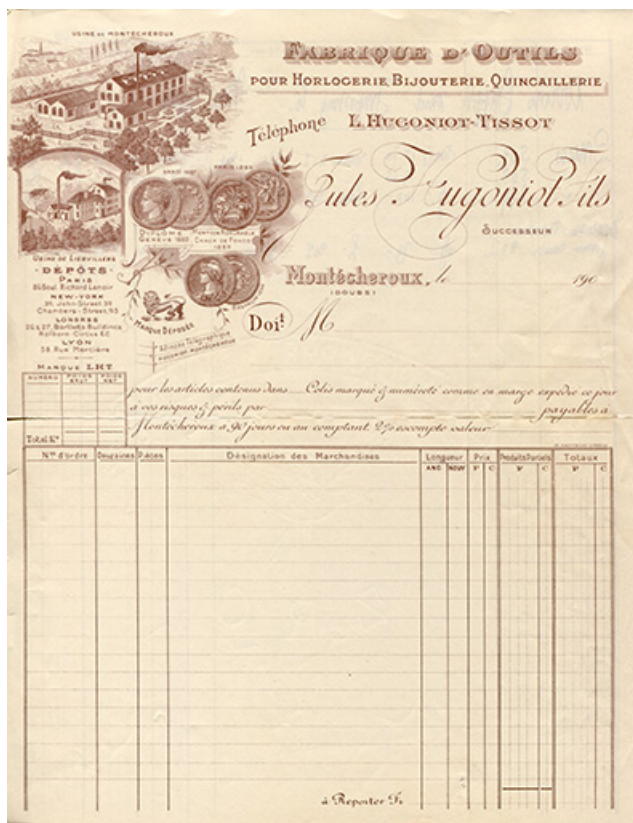 USINE DE MONTÉCHEROUX
FABRIQUE D'OUTILS
POUR HORLOGERIE, BIJOUTERIE, QUINCAILLERIE
Téléphone
L. HUGONIOT-TISSOT
Jules Hugoniot Fils
SUCCESSEUR
PARIS 1889
DIPLÔME
GENÈVE
MENTION HONORABLE
CHAUX DE FONDS
USINE DE LIEBVILLERS
DÉPÔTS
PARIS
Boul. Richard Lenoir
NEW-YORK
John Street
Chambers-Street, 93
LONDRES
Bartletts Buildings
Holborn Circus E.C.
LYON
58 Rue Mercière
MARQUE LHT
MARQUE DÉPOSÉE
Adresse Télégraphique
HUGONIOT MONTÉCHEROUX
Montécheroux, le 190
(DOUBS)
Doit M
NUMÉRO POIDS BRUT POIDS NET
Total Kº
pour les articles contenus dans Colis marqué & numéroté comme en marge expédié ce jour
à vos risques & périls par payables à
Montécheroux à 90 jours ou au comptant 2% escompte valeur
Nos d'ordre Douzaines Pièces Désignation des Marchandises Longueur Prix Produits Partiels Totaux
ANC. NOUV. F C F C F C
à Reporter Fr.